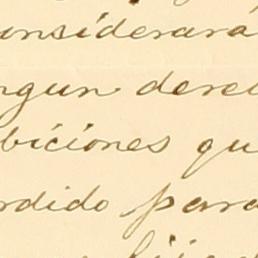 onsiderará
ngun derec
biciones qu
rdido para